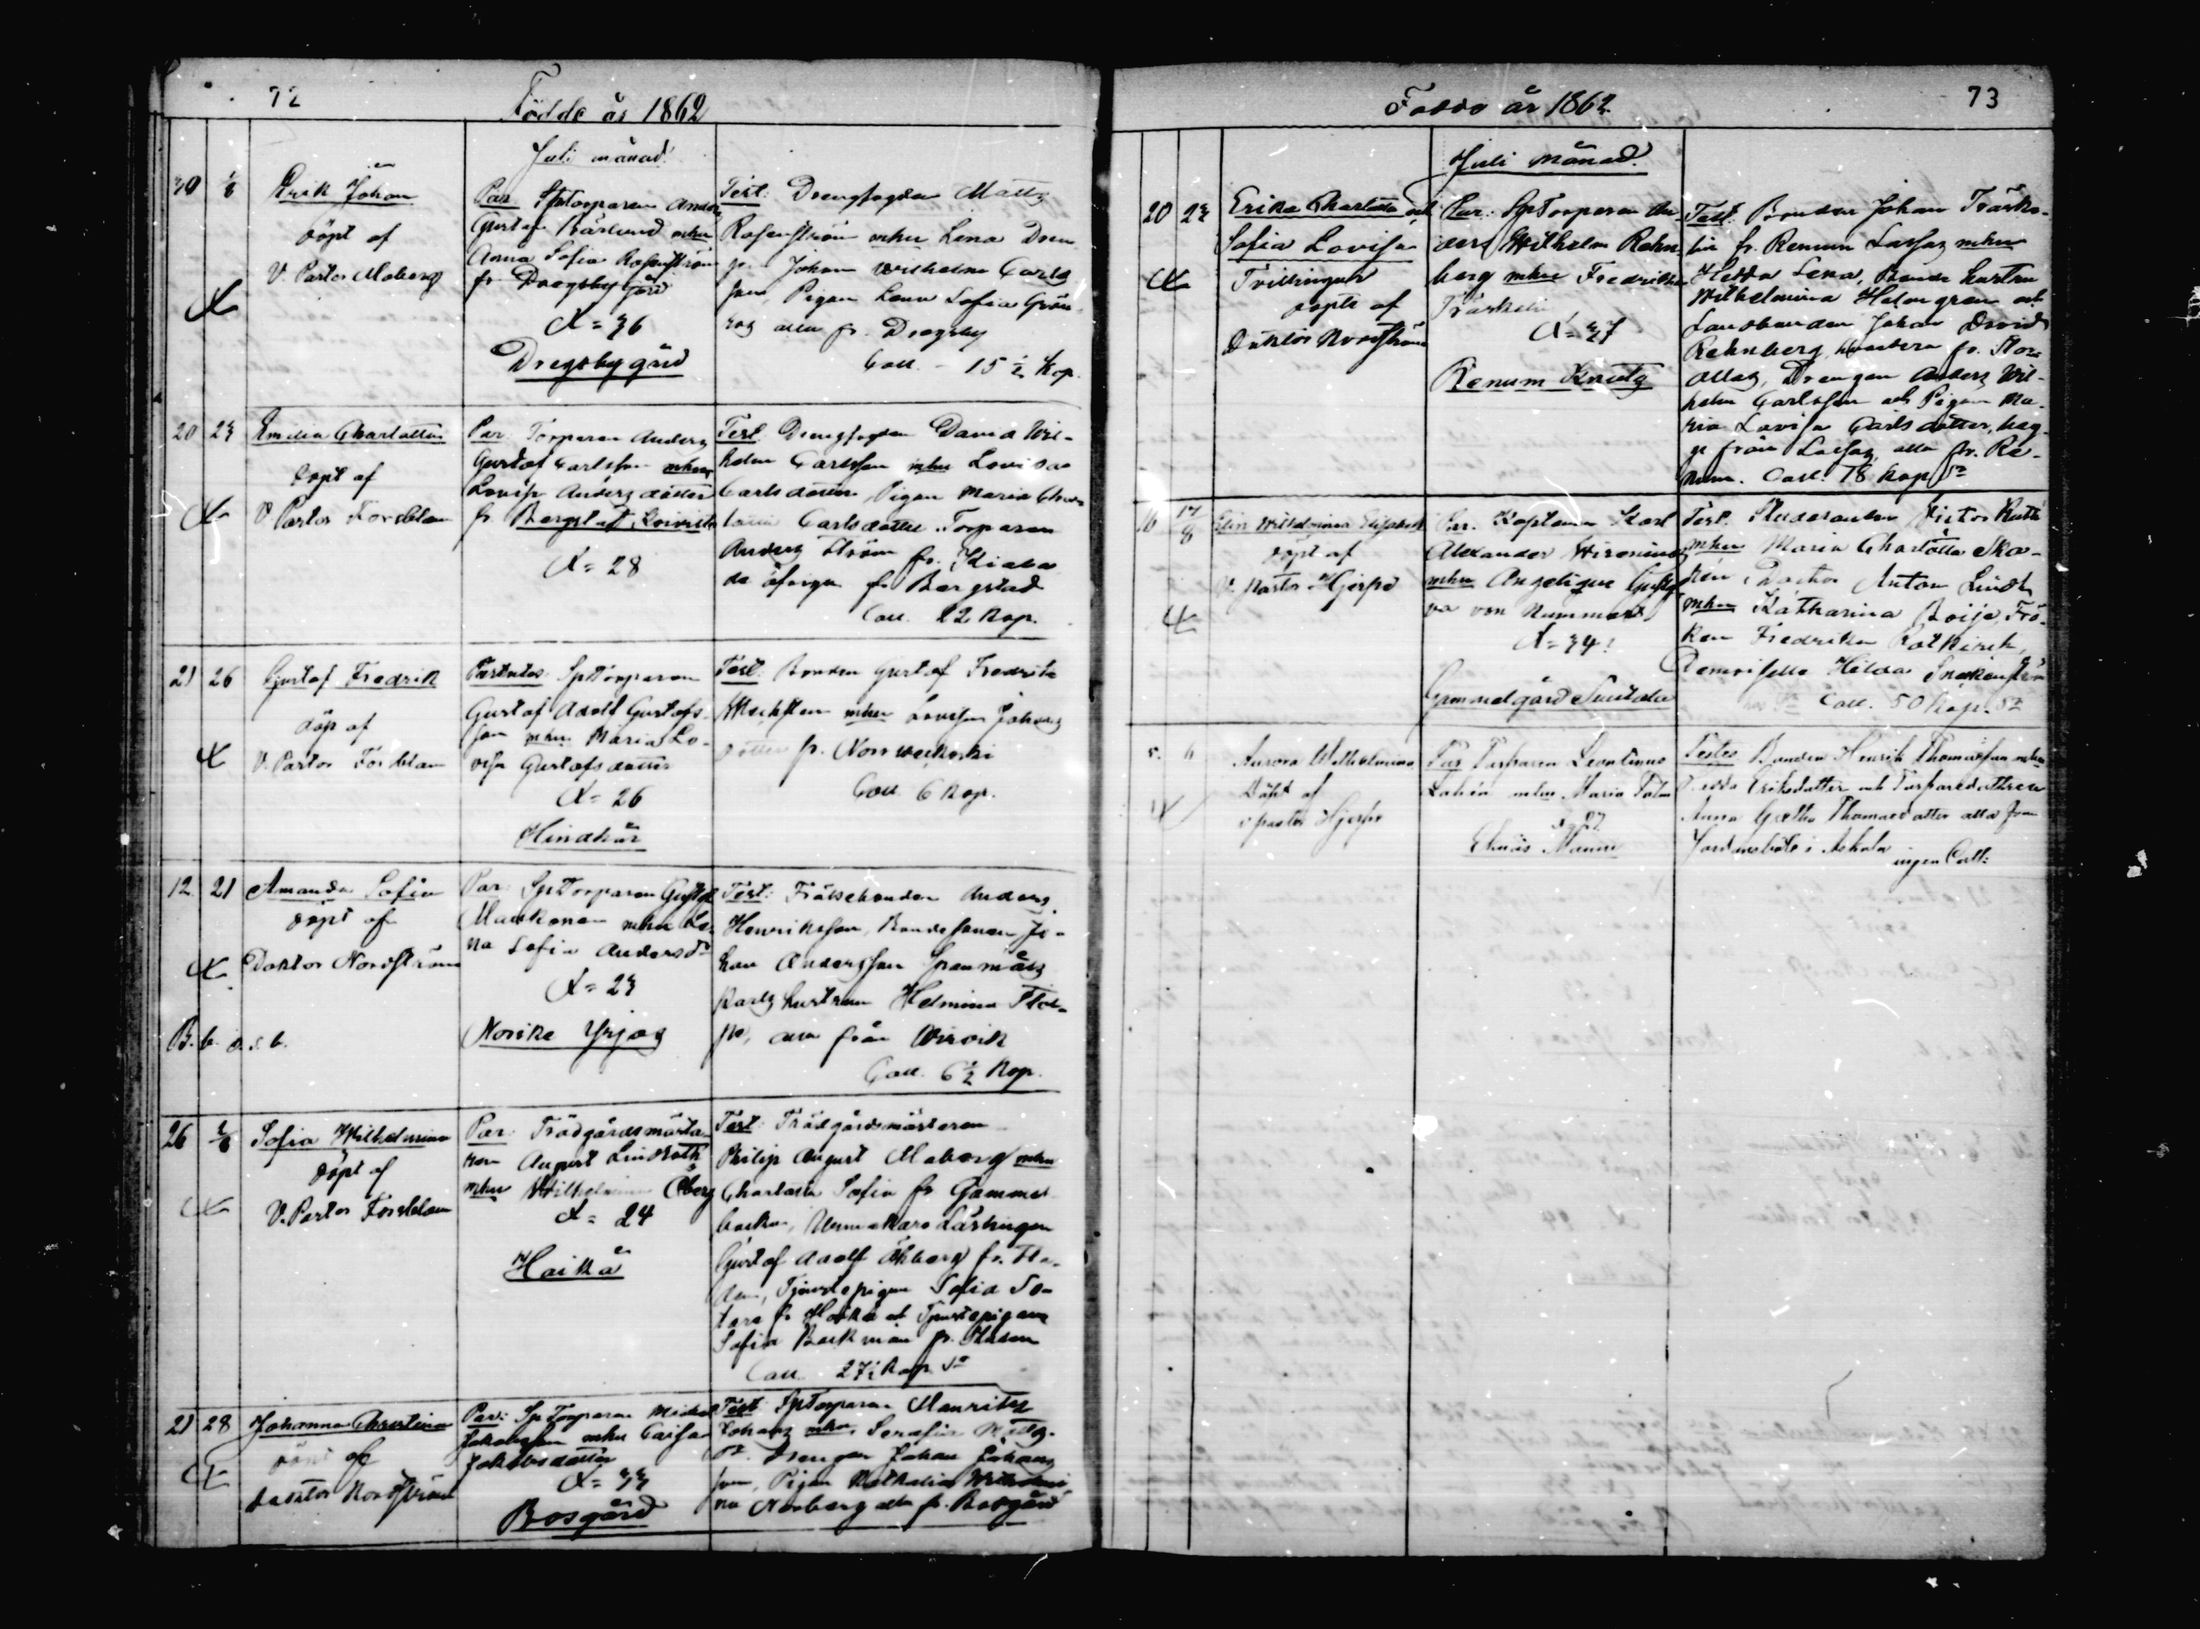 72
Födde år 1862
Juli månad.
30 1/8 Erik Johan
döpt af
V. Pastor Moberg
Par. SpTorparen Anders
Gustaf Kärlund mhu
Anna Sofia Rosenström
fr Dregsby gård
X = 36
Dregsby gård
Test: Drengfogden Matts
Rosenström mhu Lena Dren
Johan Wilhelm Carls
son, Pigan Lena Sofia Grön
alla fr. Dregsby
Coll. - 15 1/2 Kop.
20 23 Emilia Charlotta
döpt af
V Pastor Forsblom
Par Torparen Anders
Gustaf Carlsson mhu
Lovisa Andersdotter
fr. Bergstad
X = 28
Test Drengfogden David Wil-
helm Carlsson mhu Lovisa
Carlsdotter, Pigan Maria Char
lotta Carlsdotter Torparen
Anders Ström fr.
de öfriga fr Bergstad
Coll. 22 Kop.
21 26 Gustaf Fredrik
döp af
V. Pastor Forsblom
Parentes: SpTorparen
Gustaf Adolf Gustafs-
son mhu Maria Lo-
visa Gustafsdotter
X = 26
Hindhår
Test: Bonden Gustaf Fredrik
mhu Lovisa Johans
dotter fr. Norrweckoski
Coll 6 Kop.
12 21 Amanda Sofia
döpt af
Doktor Nordström
B. b. d. s. b.
Par: SpTorparen Gustaf
Muukonen mhu Le-
na Sofia Andersdr
X = 23
Norike Yrjas
Test: Frälsebonden Anders
Henriksson, Bondesonen Jo-
han Andersson
Karls hustrun Helmina
alla från Wirvik
Coll. 6 1/2 Kop.
26 2/8 Sofia Wilhelmina
döpt af
V. Pastor Forsblom
Par: Trädgårdsmästa-
ren August Lindroth
mhu Wilhelmina Öberg
X = 24
Haikå
Test: Trädgårdsmästaren
Philip August Moberg mhu
Charlotta Sofia fr Gammel
backa, Urmakare Lärlingen
Gustaf Adolf Öhberg fr. Sta-
den, Tjenstepigan Sofia
fr Haikå och Tjenstepigan
Sofia Backman fr. Staden
Coll 27 1/2 Kop Sr
21 28 Johanna Christina
döpt af
Doktor Nordström
Par: SpTorparen Michel
Jakobsson mhu Caisa
Jakobsdotter
X = 33
Bosgård
Test: SpTorparen Mauritz
Johans mhu Serafia Matts-
dr. Drengen Johan Johans
son, Pigan Nathalia Wilhelmi
na Norberg alla fr. Bosgård
73
Födde år 1862
Juli Månad.
20 23 Erika Charlotta och
Sofia Lovisa
Tvillingar
döpta af
Doktor Nordström
Par: SpTorparen An
ders Wilhelm Rehn
berg mhu Fredrika
X = 37
Renum Knuts
Test: Bonden Johan
fr. Renum Lassas mhu
Hedda Lena, Bonde hustrun
Wilhelmina Holmgren och
Landbonden Johan David
Rehnberg, fr. Stor
Drengen Anders Wil-
helm Carlsson och Pigan Ma-
ria Lovisa Carlsdotter, bäg-
ge från Lassas, alla fr. Re-
num. Coll. 78 Kop Sr
16 17/8 Elin Wilhelmina Elisabeth
döpt af
V. Pastor Hjerpe
Par. Kaptenen Karl
Alexander Wirenius
mhu Angelique Gustaf
va von Nummers
X = 34
Gammelgård
Test. Studeranden Victor
mhu Maria Charlotta
Doctor Anton Lindh
mhu Katharina Boije, Frö-
ken Fredrika Rotkirch,
Demoiselle Hilda
Coll. 50 Kop. Sr
5. 6 Aurora Wilhelmina
Döpt af
v pastor Hjerpe
Par Torparen Leontinus
mhu Maria
X 27
Testes Bonden Henrik Thomasson mhu
Hedda Eriksdotter och Torparedottren
Anna Greta Thomasdotter alla från
i Askola
ingen Coll: